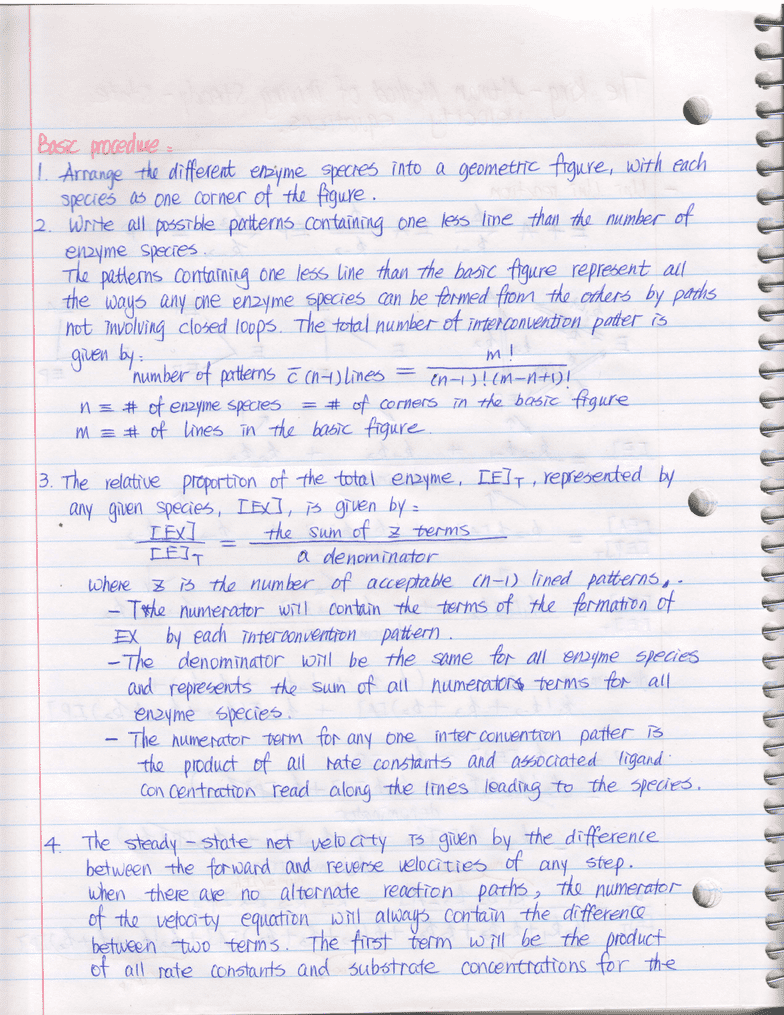 Basic procedure :
1. Arrange the different enzyme species into a geometric figure, with each
species as one corner of the figure.
2. Write all possible patterns containing one less line than the number of
enzyme species.
The patterns containing one less line than the basic figure represent all
the ways any one enzyme species can be formed from the others by paths
not involving closed loops. The total number of interconvention patter is
given by :
number of patterns c̄ (n-1) lines = m! / (n-1)! (m-n+1)!
n ≡ # of enzyme species = # of corners in the basic figure
m ≡ # of lines in the basic figure.
3. The relative proportion of the total enzyme, [E]T, represented by
any given species, [EX], is given by :
[EX] / [E]T = the sum of z terms / a denominator
where z is the number of acceptable (n-1) lined patterns.
- The numerator will contain the terms of the formation of
EX by each interconvention pattern.
- The denominator will be the same for all enzyme species
and represents the sum of all numerators terms for all
enzyme species.
- The numerator term for any one interconvention patter is
the product of all rate constants and associated ligand
concentration read along the lines leading to the species.
4. The steady-state net velocity is given by the difference
between the forward and reverse velocities of any step.
when there are no alternate reaction paths, the numerator
of the velocity equation will always contain the difference
between two terms. The first term will be the product
of all rate constants and substrate concentrations for the